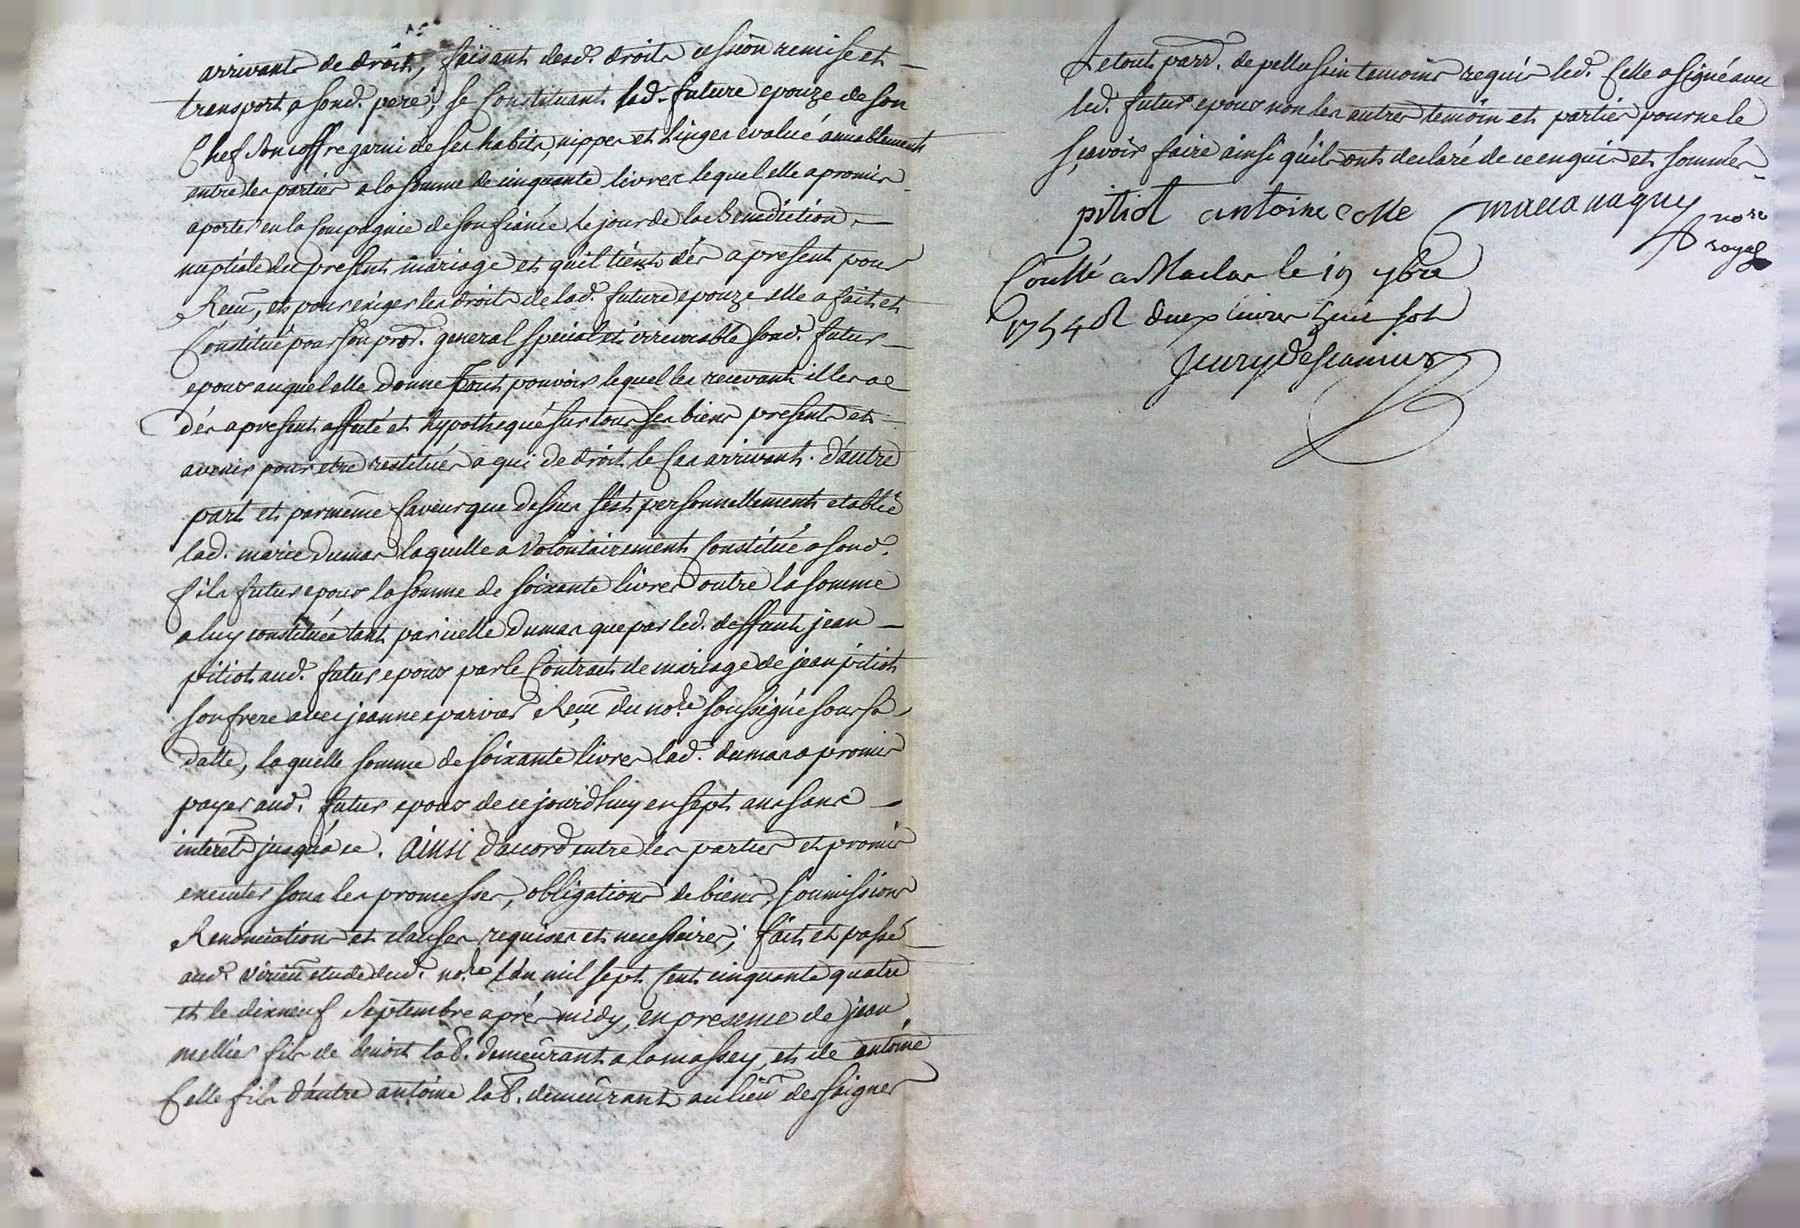 arrivant de droit, faisant desd. droits cession remise et
transport a sond. pere, se constituant lad. future epouze de son
Chef son coffre garni de ses habits, nippes et linges evalué amiablement
entre les parties a la somme de cinquante livres lequel elle a promis
aporter en la Compagnie de son fiancé le jour de la benediction
nuptiale du present mariage et qu'il tient dés a present pour
Receu, et pour exiger les droits de lad. future epouze elle a fait et
Constitué pour son procr. general special et irrevocable sond. futur
epoux auquel elle donne tout pouvoir lequel les recevant il les a
dés a present affecté et hypothequé sur tous ses biens presents et
avenir pour etre restitués a qui de droit le cas arrivant. d'autre
part et par même faveur que dessus s'est personnellement etablie
lad. marie dumas laquelle a volontairement Constitué a sond.
fils futur epoux la somme de soixante livres outre la somme
a luy constituée tant par icelle dumas que par led. deffunt jean
pitiot aud. futur epoux par le Contract de mariage de jean pitiot
son frere avec jeanne eparvier Receu du nore. soussigné sous sa
datte, laquelle somme de soixante livres lad. dumas a promis
payer aud. futur epoux de ce jourd'huy en sept ans sans
interets jusqu'a ce. ainsi d'accord entre les parties et promis
executer sous les promesses, obligations de biens, soumissions
Renonciations et clauses requises et necessaires; fait et passé
aud. virieu etude dud. nore. l'an mil sept Cent cinquante quatre
et le dixneuf septembre aprés midy, en presence de jean
mellier fils de benoit lab. demeurant a lamassey, et de antoine
Celle fils d'autre antoine lab. demeurant au lieu des saignes
Le tout parr. de pellussin temoins requis led. Celle a signé avec
led. futur epoux non les autres temoin et parties pour ne le
sçavoir faire ainsi qu'ils ont declaré de ce enquis et sommés
pitiot antoine celle nore
royal
Conllé a Maclas le 19 7bre
1754 R deux livres huit sols